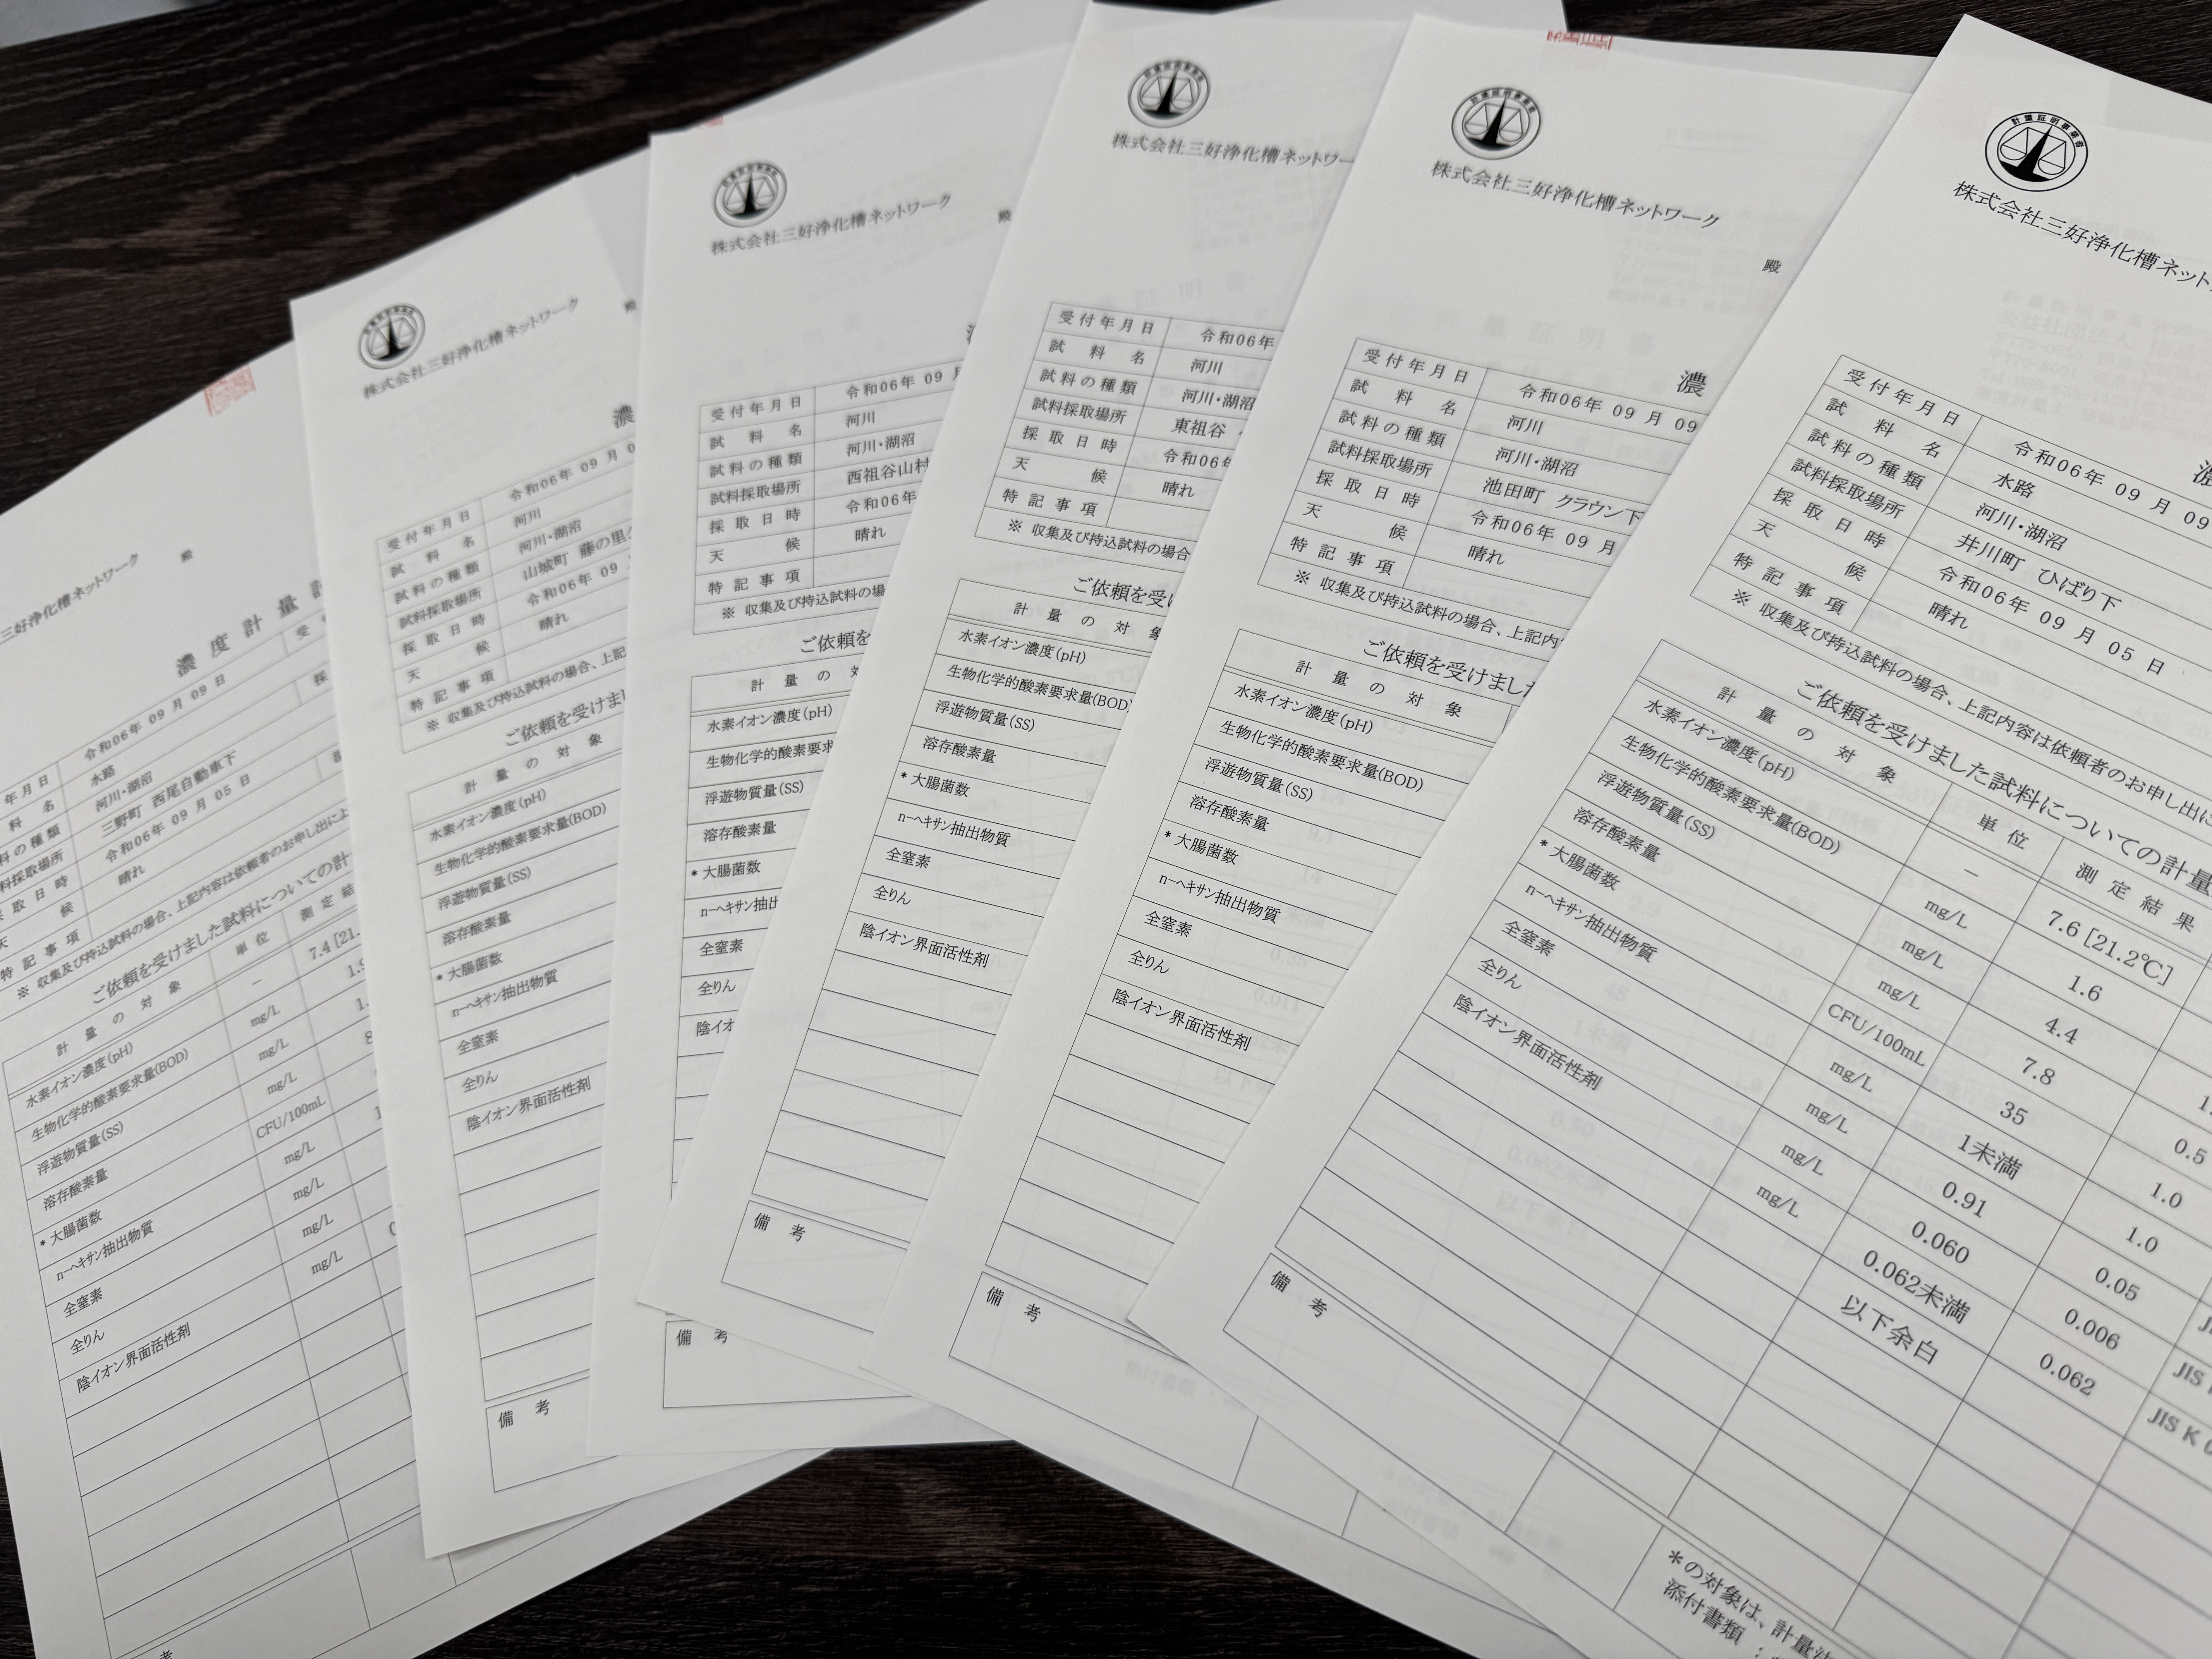 三好浄化槽ネットワーク
殿
濃 度 計 量
年月日 令和06年 09 月 09 日
料 名 水路
料の種類 河川・湖沼
料採取場所 三野町 西尾自動車下
取 日 時 令和06年 09 月 05 日
天 候 晴れ
特 記 事 項
※ 収集及び持込試料の場合、上記内容は依頼者のお申し出によ
ご依頼を受けました試料についての計
計 量 の 対 象 単 位 測 定 結
水素イオン濃度(pH) － 7.4 [21.
生物化学的酸素要求量(BOD) mg/L
浮遊物質量(SS) mg/L
溶存酸素量 mg/L
* 大腸菌数 CFU/100mL
n-ヘキサン抽出物質 mg/L
全窒素 mg/L
全りん mg/L
陰イオン界面活性剤 mg/L
考
計量証明事業者
株式会社三好浄化槽ネットワーク
殿
濃
受 付 年 月 日 令和06年 09 月 0
試 料 名 河川
試 料 の 種 類 河川・湖沼
試料採取場所 山城町 藤の里
採 取 日 時 令和06年 09
天 候 晴れ
特 記 事 項
※ 収集及び持込試料の場合、上記
ご依頼を受けま
計 量 の 対 象
水素イオン濃度(pH)
生物化学的酸素要求量(BOD)
浮遊物質量(SS)
溶存酸素量
* 大腸菌数
n-ヘキサン抽出物質
全窒素
全りん
陰イオン界面活性剤
備 考
計量証明事業者
株式会社三好浄化槽ネットワーク
殿
受 付 年 月 日 令和06年 09
試 料 名 河川
試 料 の 種 類 河川・湖沼
試料採取場所 西祖谷山村
採 取 日 時 令和06年
天 候 晴れ
特 記 事 項
※ 収集及び持込試料の場
ご依頼を
計 量 の
水素イオン濃度(pH)
生物化学的酸素要求
浮遊物質量(SS)
溶存酸素量
* 大腸菌数
n-ヘキサン抽出
全窒素
全りん
陰イオ
備 考
計量証明事業者
株式会社三好浄化槽ネットワー
受 付 年 月 日 令和06年
試 料 名 河川
試 料 の 種 類 河川・湖沼
試料採取場所 東祖谷
採 取 日 時 令和06年
天 候 晴れ
特 記 事 項
※ 収集及び持込試料の場合
ご依頼を受け
計 量 の 対 象
水素イオン濃度(pH)
生物化学的酸素要求量(BOD)
浮遊物質量(SS)
溶存酸素量
* 大腸菌数
n-ヘキサン抽出物質
全窒素
全りん
陰イオン界面活性剤
備 考
計量証明事業者
株式会社三好浄化槽ネットワーク
殿
濃
受 付 年 月 日 令和06年 09 月 09
試 料 名 河川
試 料 の 種 類 河川・湖沼
試料採取場所 池田町 クラウン下
採 取 日 時 令和06年 09 月
天 候 晴れ
特 記 事 項
※ 収集及び持込試料の場合、上記内
ご依頼を受けました
計 量 の 対 象
水素イオン濃度(pH)
生物化学的酸素要求量(BOD)
浮遊物質量(SS)
溶存酸素量
* 大腸菌数
n-ヘキサン抽出物質
全窒素
全りん
陰イオン界面活性剤
備 考
計量証明事業者
株式会社三好浄化槽ネット
濃
受 付 年 月 日 令和06年 09 月 09
試 料 名 水路
試 料 の 種 類 河川・湖沼
試料採取場所 井川町 ひばり下
採 取 日 時 令和06年 09 月 05 日
天 候 晴れ
特 記 事 項
※ 収集及び持込試料の場合、上記内容は依頼者のお申し出に
ご依頼を受けました試料についての計量
計 量 の 対 象 単 位 測 定 結 果
水素イオン濃度(pH) － 7.6 [21.2℃]
生物化学的酸素要求量(BOD) mg/L 1.6
浮遊物質量(SS) mg/L 4.4 1.
溶存酸素量 mg/L 7.8 0.5
* 大腸菌数 CFU/100mL 35 1.0
n-ヘキサン抽出物質 mg/L 1未満 1.0
全窒素 mg/L 0.91 0.05
全りん mg/L 0.060 0.006 JIS
陰イオン界面活性剤 mg/L 0.062未満 0.062 JIS K 0
以下余白
備 考
*の対象は、計量法
添付書類 :